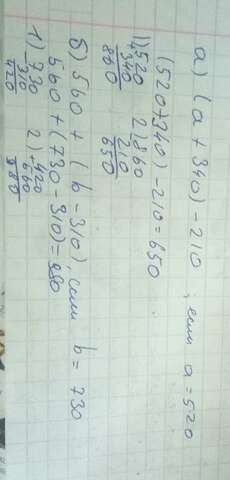 а) (а + 340) - 210 , если а = 520
(520+340) - 210 = 650
1) 520 2) 860
+340 210
860 650
б) 560 + (b - 310), если b = 730
560 + (730 - 310) = 980
1) 730 2) 420
- 310 + 560
420 980